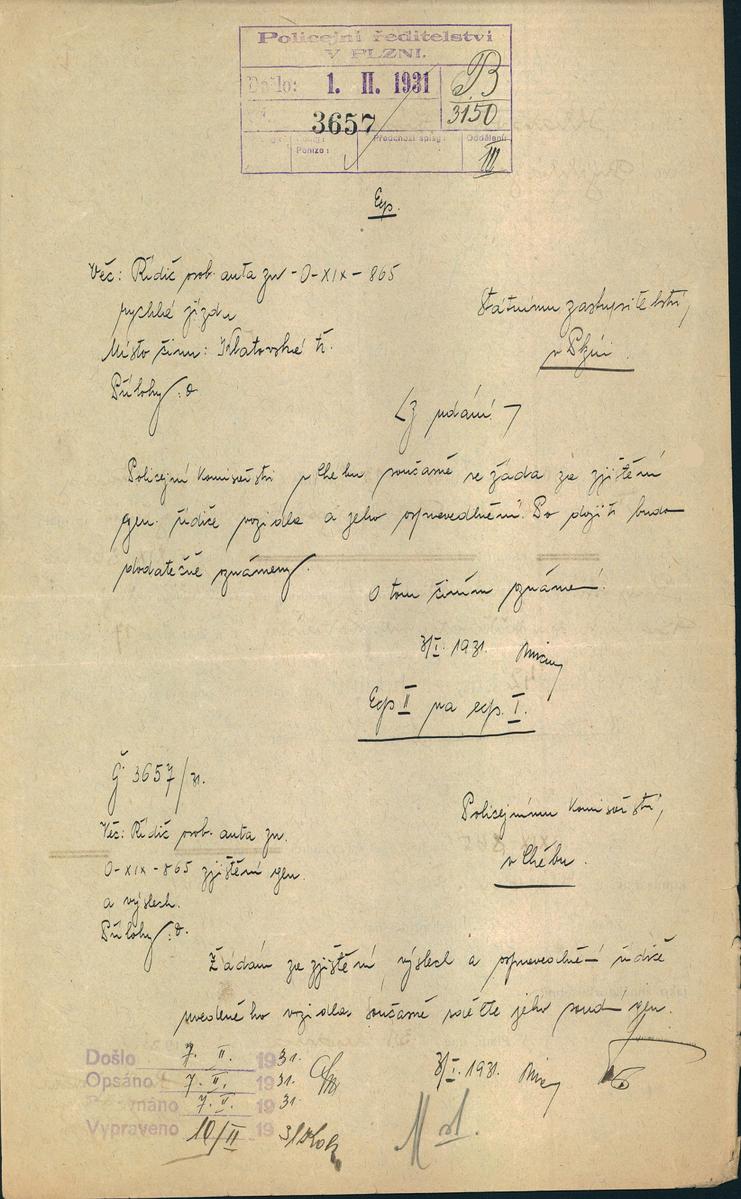 Policejní ředitelství
V PLZNI.
Došlo: 1. II. 1931
B
3150
3657
Předchozí spisy:
Oddělení:
Poníze:
III
Exp.
Věc: Řidič osob. auta zn - O-XIX-865
rychlá jízda
Místo činu: Klatovská tř.
Přílohy: 0
Státnímu zastupitelství,
v Plzni.
Z udání
Policejní komisařství v Chebu současně se žádá za zjištění
gen. řidiče vozidla a jeho ospravedlnění. Po dojití budou
dodatečně oznámeny.
O tom činím oznámení.
1931.
Exp II na exp. I.
Č. 3657/31.
Věc: Řidič osob. auta zn.
O-XIX-865 zjištění gen.
a výslech.
Přílohy: 0.
Policejnímu komisařství,
v Chebu.
Žádám za zjištění, výslech a ospravedlnění řidiče
uvedeného vozidla. Současně sdělte jeho soud. gen.
1931.
Došlo 7. II. 1931.
Opsáno 7. II. 1931.
7. II. 1931
Vypraveno 10/II 1931